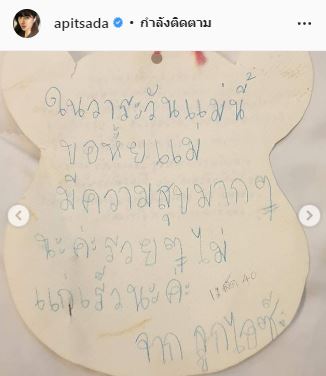 apitsada • กำลังติดตาม
ในวาระวันแม่นี้
ขอให้แม่
มีความสุขมากๆ
นะค่ะรวยๆ ไม่
แก่เร็วนะค่ะ
จาก ลูกไอซ์